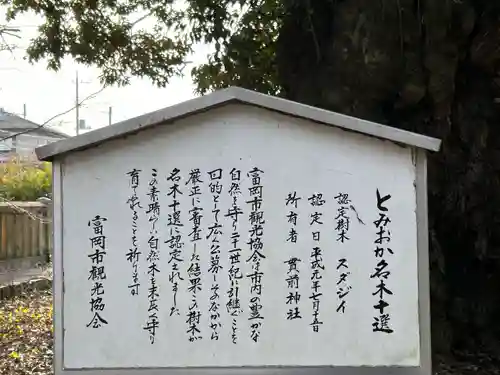 とみおか名木十選
認定樹木 スダジイ
認定日 平成元年七月十五日
所有者 貫前神社
富岡市観光協会は市内の豊かな
自然を守り二十一世紀に引継ぐことを
目的として広く公募しそのなかから
厳正に審査した結果この樹木が
名木十選に認定されました
この素晴しい自然木を末長く守り
育てられることを祈ります
富岡市観光協会